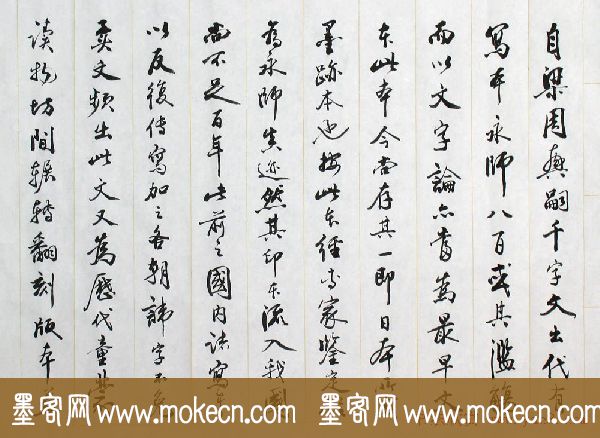 自梁周興嗣千字文出代有
寫本永師八百或其濫觴
而以文字論亦當為最早文
本此本今尚存其一即日本
墨跡本也按此本經專家鑒定
為永師真迹然其印本流入我國
尚不足百年此前之國內諸寫本
以反復傳寫加之各朝諱字不免
異文頻出此文又為歷代童蒙
讀物坊間輾轉翻刻版本
墨客网www.mokecn.com 墨客网www.mokecn.com